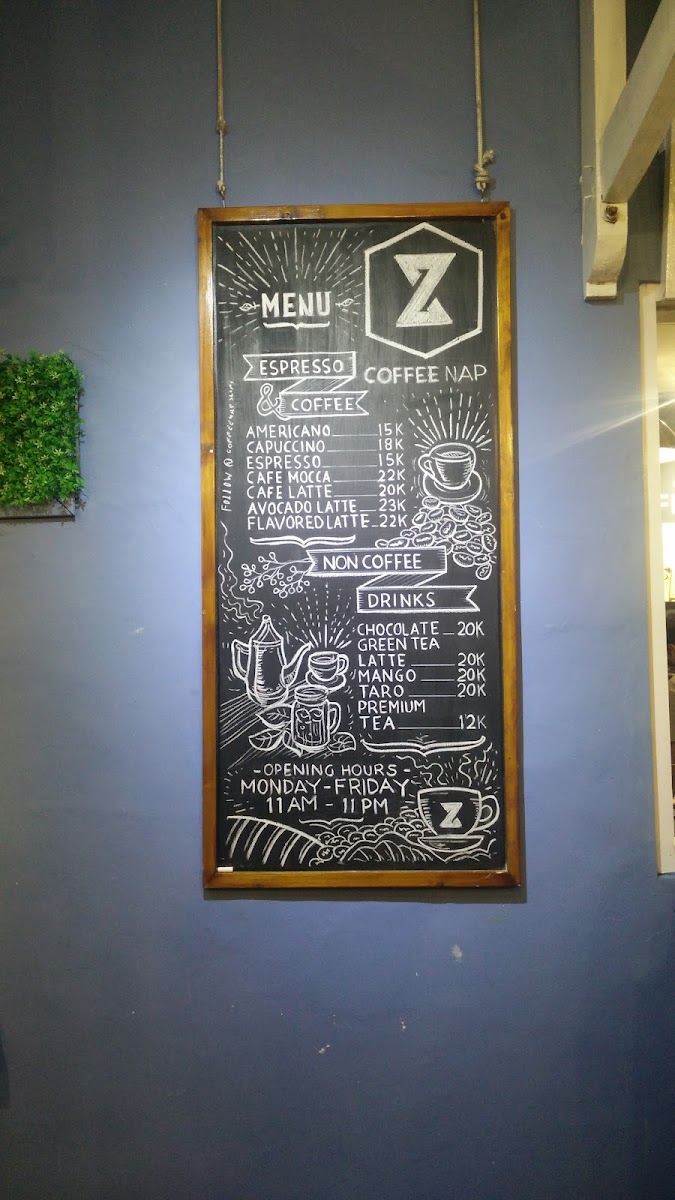 MENU
Z
COFFEE NAP
ESPRESSO
& COFFEE
AMERICANO 15K
CAPUCCINO 18K
ESPRESSO 15K
CAFE MOCCA 22K
CAFE LATTE 20K
AVOCADO LATTE 23K
FLAVORED LATTE 22K
FOLLOW
NON COFFEE
DRINKS
CHOCOLATE 20K
GREEN TEA
LATTE 20K
MANGO 20K
TARO 20K
PREMIUM
TEA 12K
- OPENING HOURS -
MONDAY - FRIDAY
11 AM - 11 PM
Z